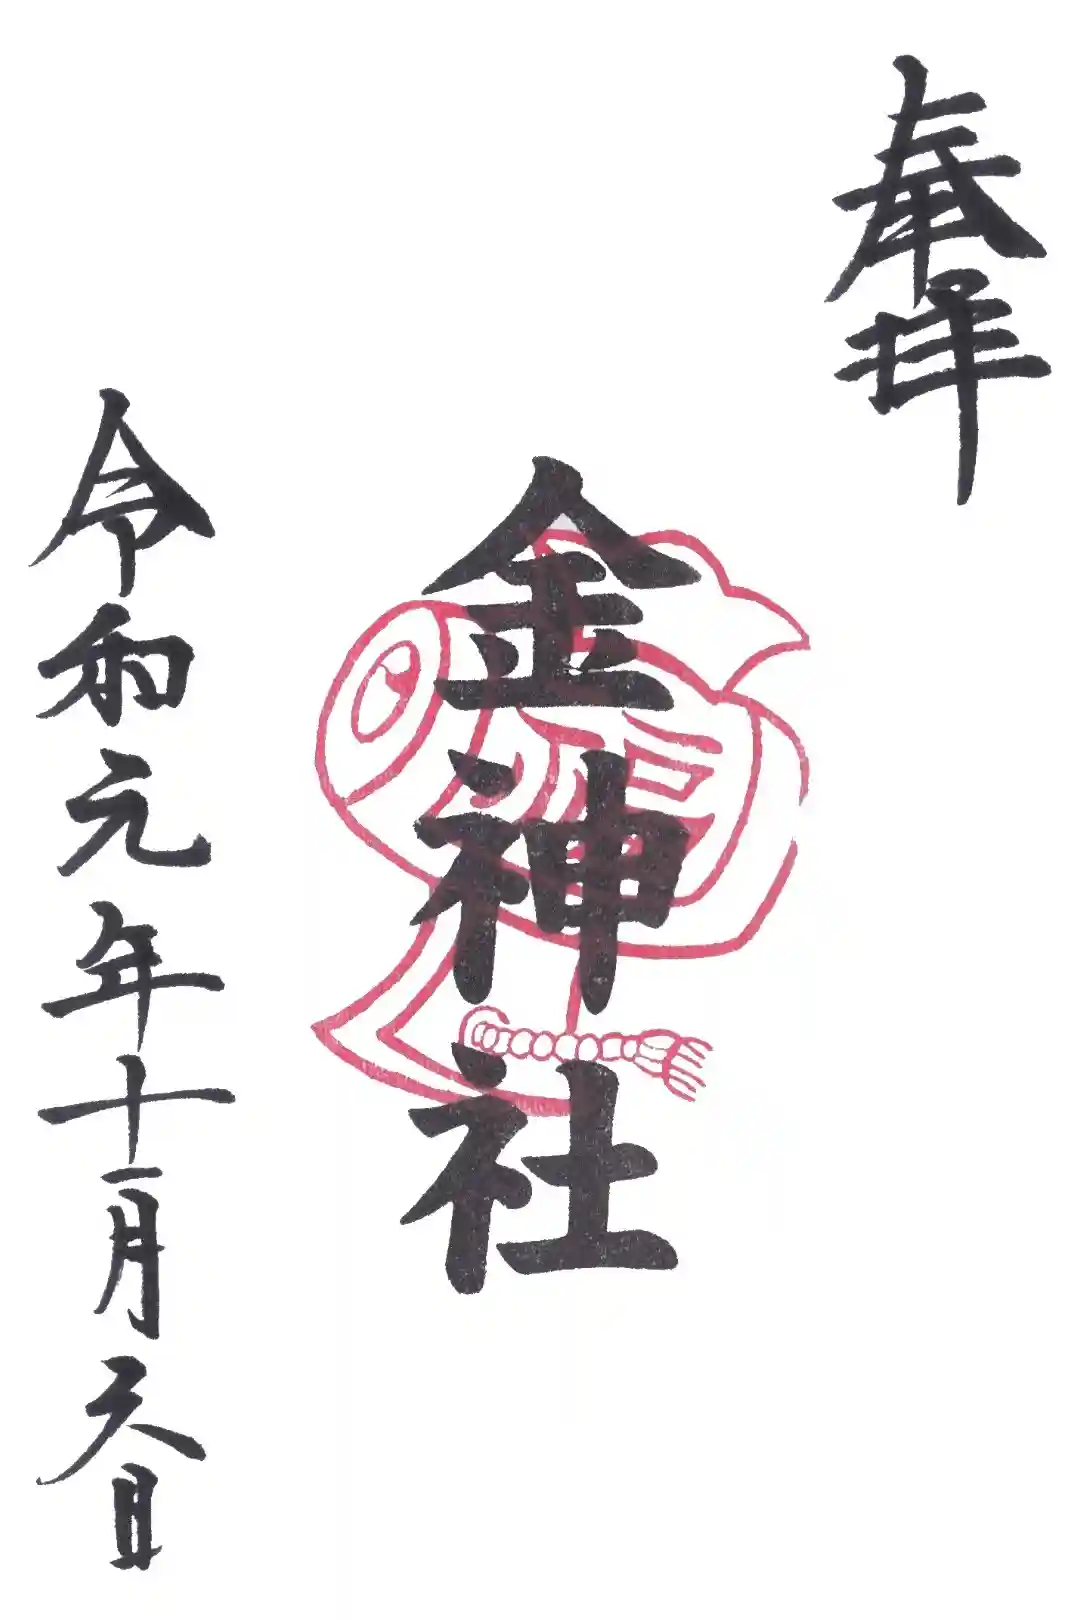 奉拝
金神社
令和元年十一月天日